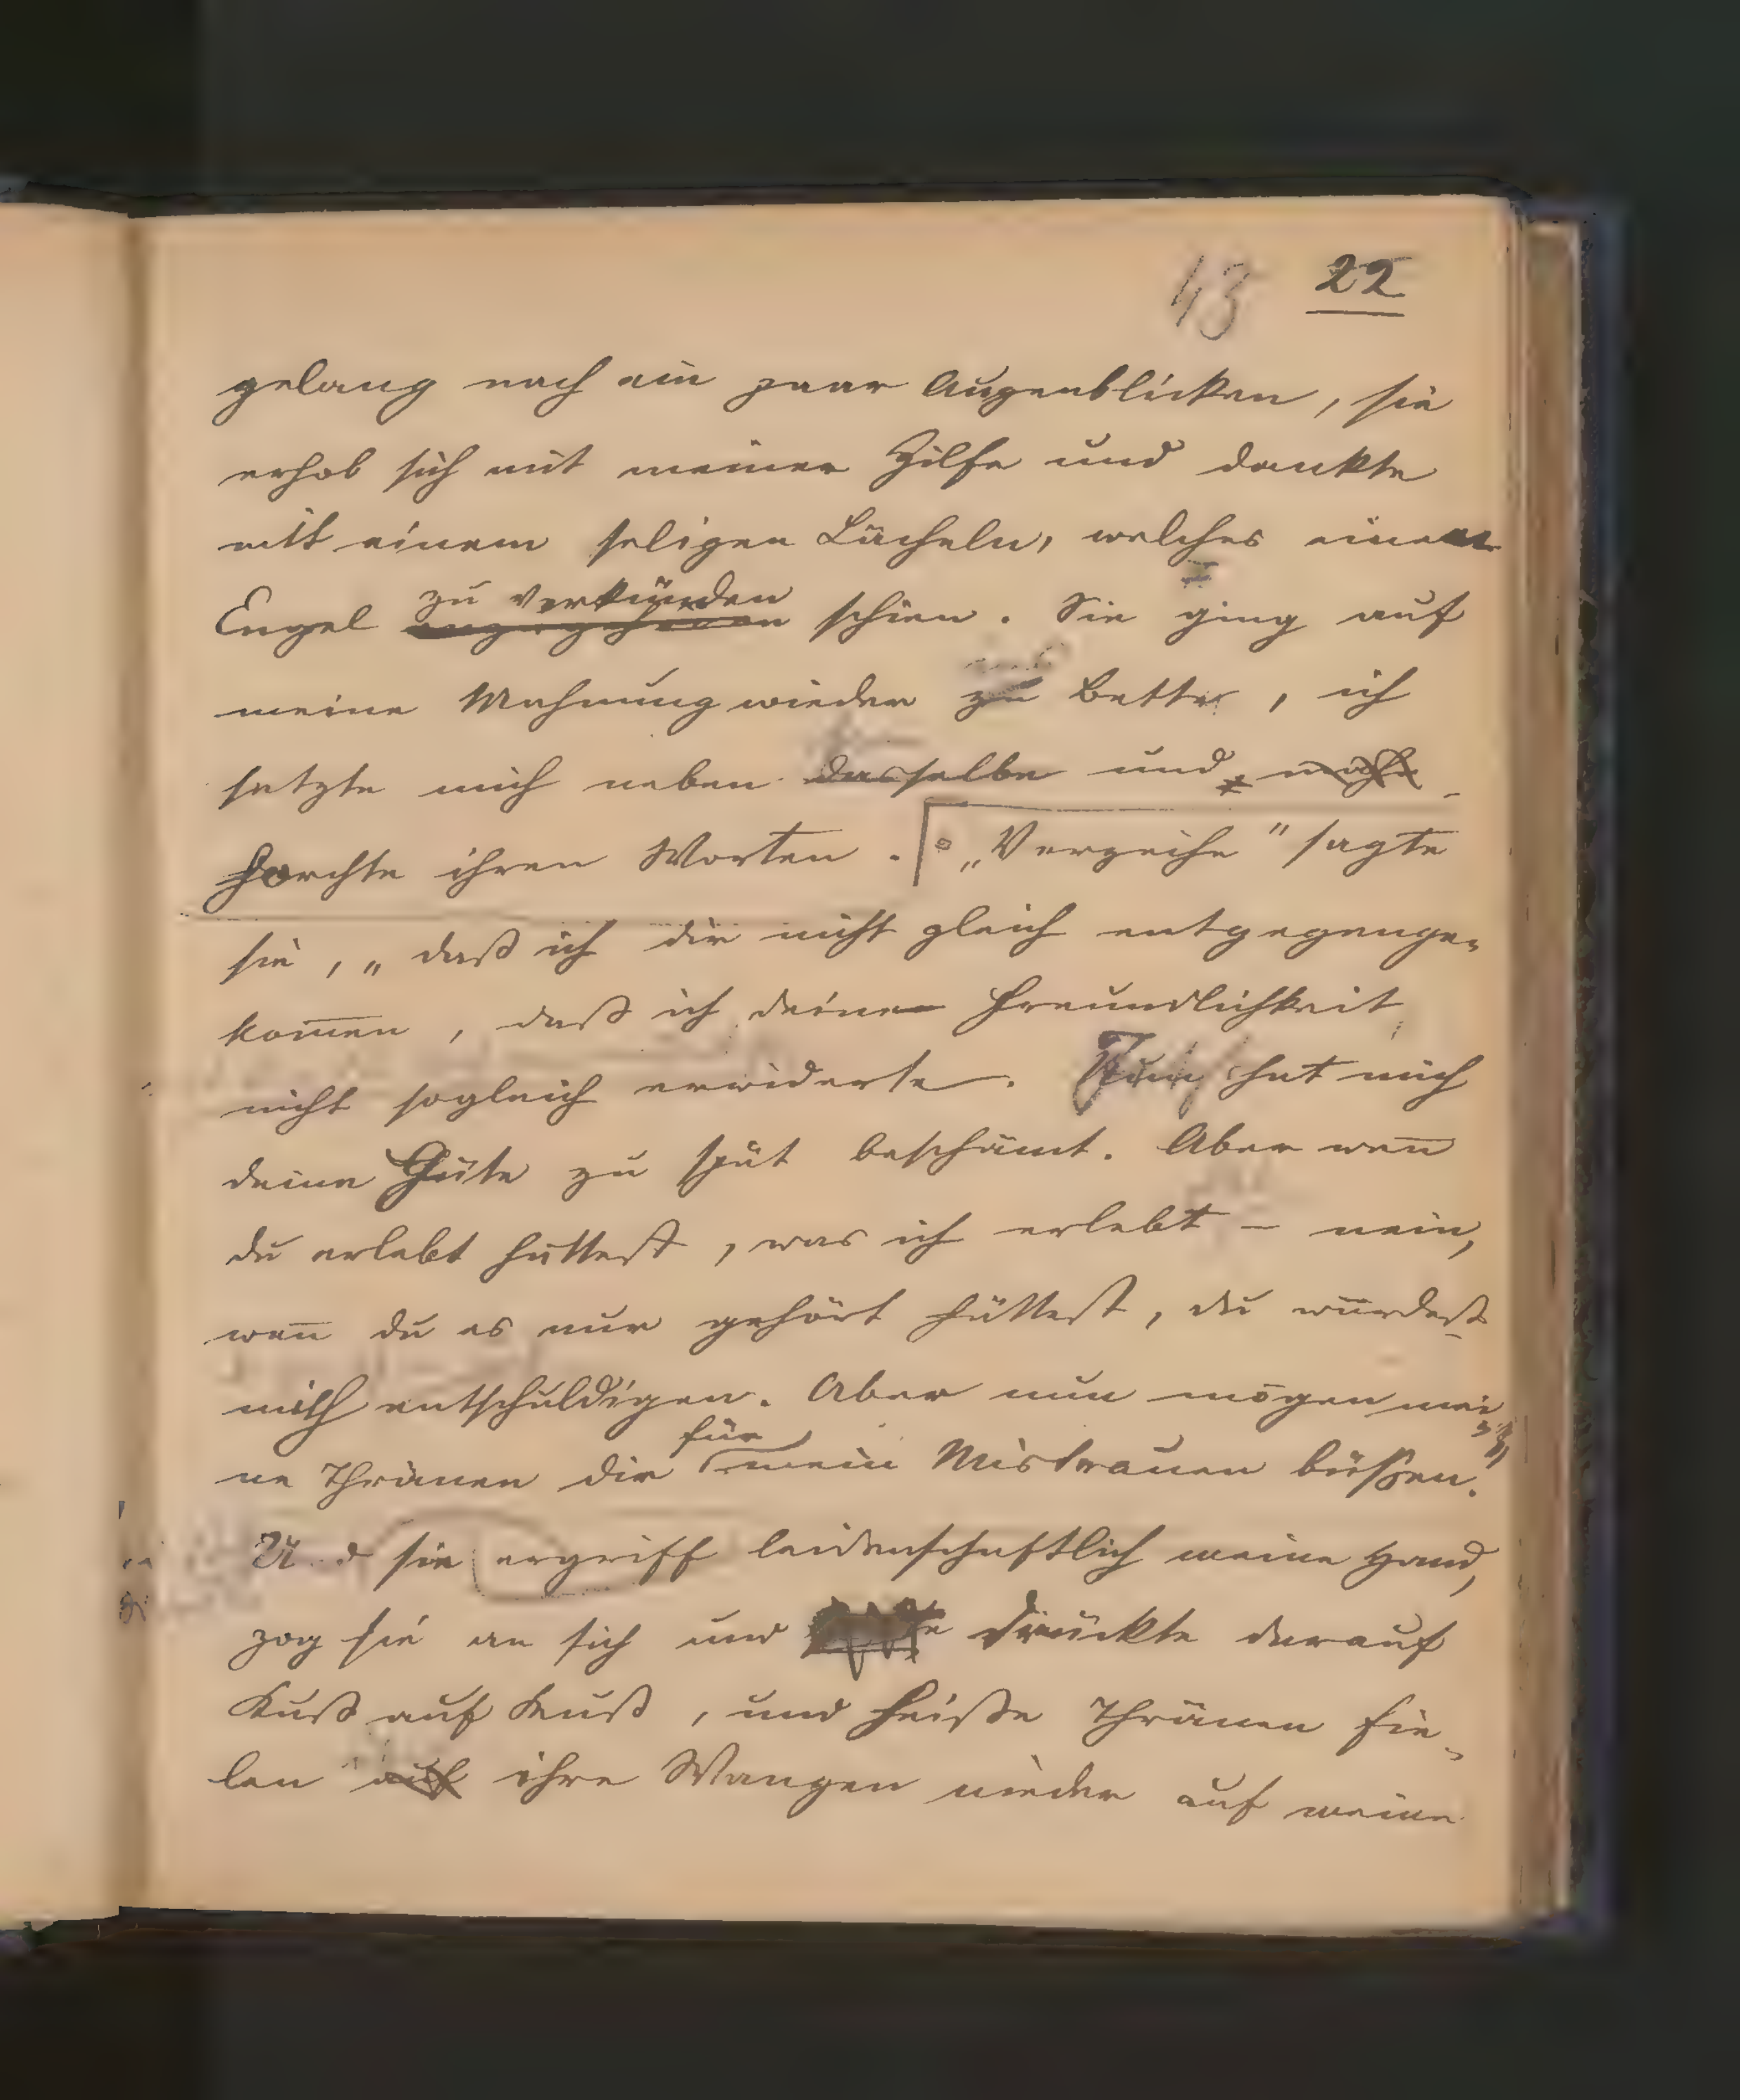 43 22
gelang nach ein paar Augenblicken, sie
erhob sich mit meiner Hilfe und dankte
mit einem seligen Lächeln, welches einen
zu verkünden
Engel anzugehören schien. Sie ging auf
meine Mahnung wieder zu Bette, ich
setzte mich neben dasselbe und
horchte ihren Worten. „Verzeihe" sagte
sie, „daß ich dir nicht gleich entgegenge-
kom̅en, daß ich deine Freundlichkeit
nicht sogleich erwiderte. Nun hat mich
deine Güte zu spät beschämt. Aber wen̅
du erlebt hättest, was ich erlebt – nein,
wen̅ du es nur gehört hättest, du würdest
mich entschuldigen. Aber nun mögen mei-
für
ne Thränen dir mein Mistrauen büßen."
Und sie ergriff leidenschaftlich meine Hand,
zog sie an sich und drückte darauf
Kuß auf Kuß, und heiße Thränen fie-
len auf ihre Wangen nieder auf meine